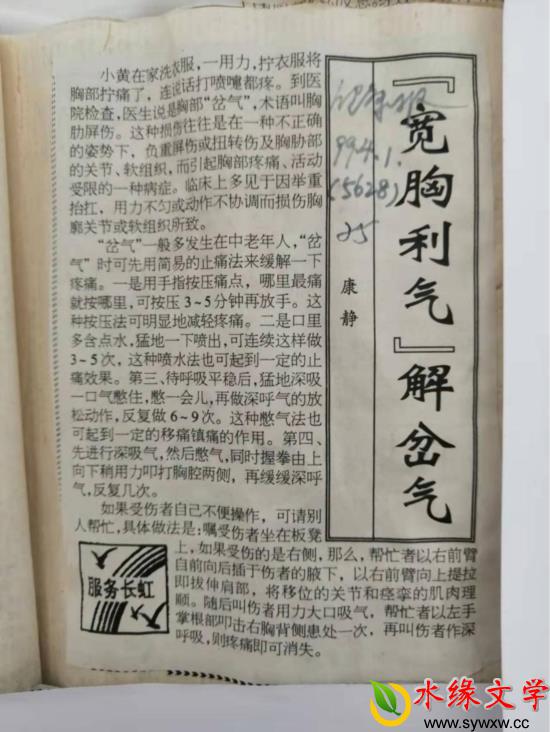 『宽胸利气』解岔气
康静
99.4.1.
(5628)
25
小黄在家洗衣服,一用力,拧衣服将
胸部拧痛了,连说话打喷嚏都疼。到医
院检查,医生说是胸部“岔气”,术语叫胸
肋屏伤。这种损伤往往是在一种不正确
的姿势下,负重屏伤或扭转伤及胸胁部
的关节、软组织,而引起胸部疼痛、活动
受限的一种病症。临床上多见于因举重
抬扛,用力不匀或动作不协调而损伤胸
廓关节或软组织所致。
“岔气”一般多发生在中老年人,“岔
气”时可先用简易的止痛法来缓解一下
疼痛。一是用手指按压痛点,哪里最痛
就按哪里,可按压3~5分钟再放手。这
种按压法可明显地减轻疼痛。二是口里
多含点水,猛地一下喷出,可连续这样做
3~5次,这种喷水法也可起到一定的止
痛效果。第三、待呼吸平稳后,猛地深吸
一口气憋住,憋一会儿,再做深呼气的放
松动作,反复做6~9次。这种憋气法也
可起到一定的移痛镇痛的作用。第四、
先进行深吸气,然后憋气,同时握拳由上
向下稍用力叩打胸腔两侧,再缓缓深呼
气,反复几次。
如果受伤者自己不便操作,可请别
人帮忙,具体做法是:嘱受伤者坐在板凳
上,如果受伤的是右侧,那么,帮忙者以右前臂
自前向后插于伤者的腋下,以右前臂向上提拉
即拔伸肩部,将移位的关节和痉挛的肌肉理
顺。随后叫伤者用力大口吸气,帮忙者以左手
掌根部叩击右胸背侧患处一次,再叫伤者作深
呼吸,则疼痛即可消失。
服务长虹
水缘文学
www.sywxw.cc